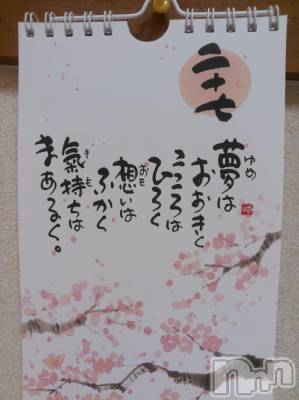 二十七
夢は
おおきく
こころは
ひろく
想いは
ふかく
氣持ちは
まあるく。
ゆめ
おも
きも